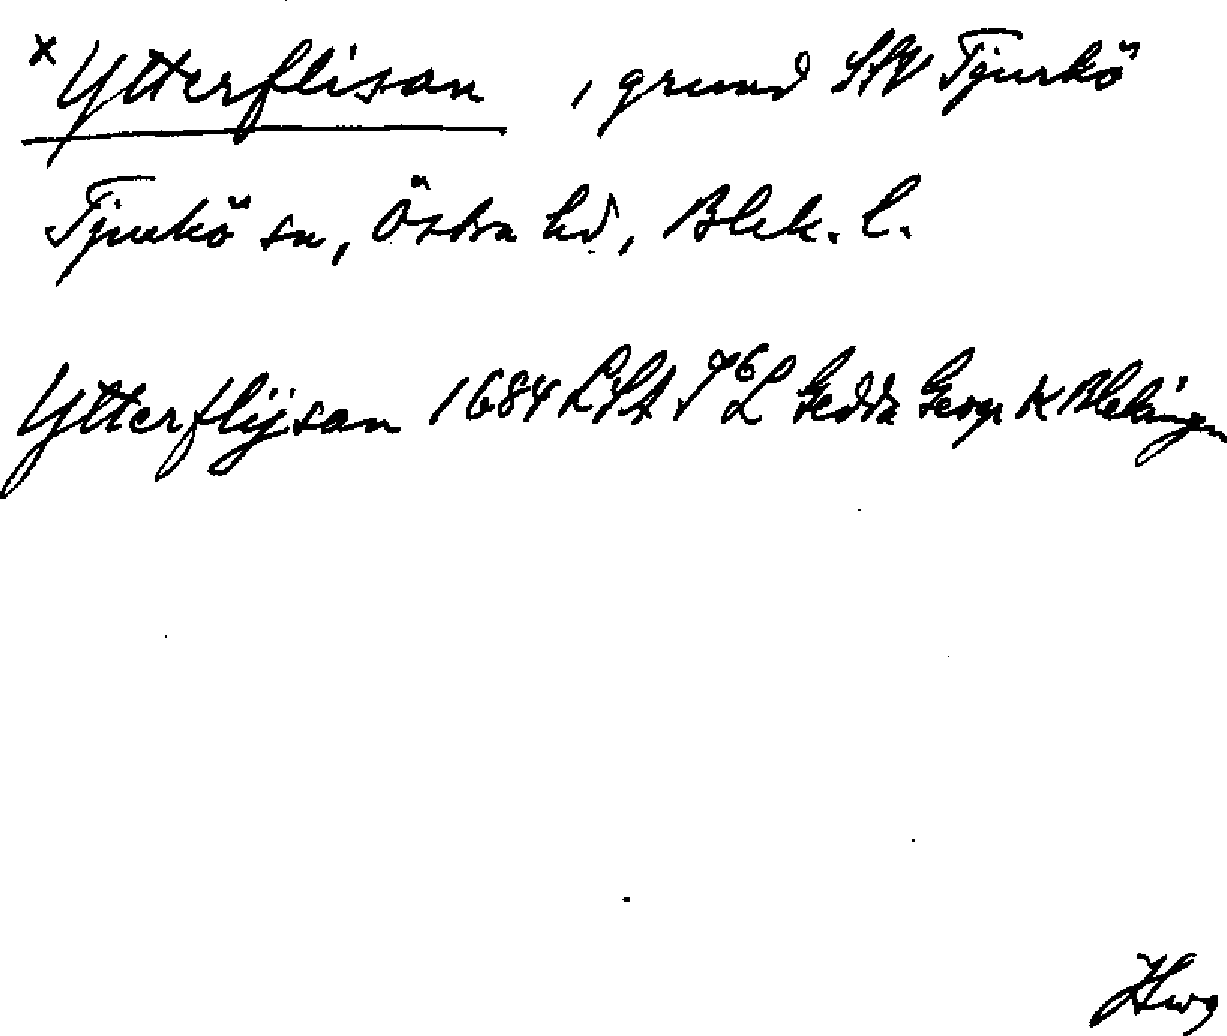 x Ytterflisan , grund SW Tjurkö
Tjurkö sn, Östra hd, Blek. l.
Ytterflijsan 1684 Gedda Geogr K Blekingen
Hwg